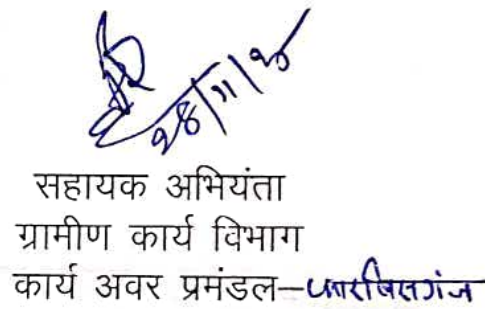 28/11/20
सहायक अभियंता
ग्रामीण कार्य विभाग
कार्य अवर प्रमंडल–फारबिसगंज